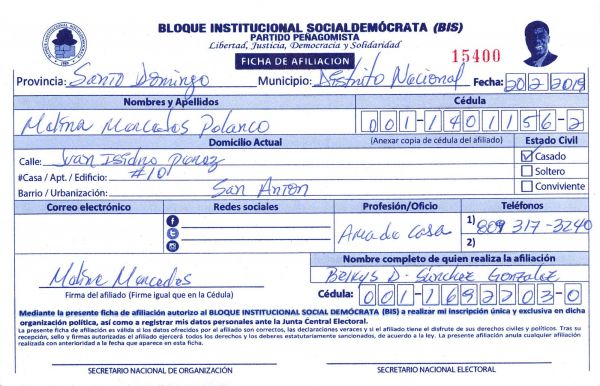 BLOQUE INSTITUCIONAL SOCIALDEMÓCRATA (BIS)
PARTIDO PEÑAGOMISTA
Libertad, Justicia, Democracia y Solidaridad
FICHA DE AFILIACION
15400
Provincia: Santo Domingo Municipio: Distrito Nacional Fecha: 20 2 2019
Nombres y Apellidos Cédula
Molina Mercedes Polanco 001-1401156-2
Domicilio Actual (Anexar copia de cédula del afiliado) Estado Civil
Calle: Juan Isidro Perez Casado
#Casa / Apt. / Edificio: #101 Soltero
Barrio / Urbanización: San Anton Conviviente
Correo electrónico Redes sociales Profesión/Oficio Teléfonos
Ama de casa 1) 809 317-3240
2)
Nombre completo de quien realiza la afiliación
Molina Mercedes Belkys D. Sánchez Gonzalez
Firma del afiliado (Firme igual que en la Cédula) Cédula: 001-1692203-0
Mediante la presente ficha de afiliación autorizo al BLOQUE INSTITUCIONAL SOCIAL DEMÓCRATA (BIS) a realizar mi inscripción única y exclusiva en dicha
organización política, así como a registrar mis datos personales ante la Junta Central Electoral.
La presente ficha de afiliación es válida si los datos ofrecidos por el afiliado son correctos, las declaraciones veraces y si el afiliado tiene el disfrute de sus derechos civiles y políticos. Tras su
recepción, sello y firmas autorizadas el afiliado ejercerá todos los derechos y los deberes estatutariamente sancionados, de acuerdo a la ley. La presente afiliación anula cualquier afiliación
realizada con anterioridad a la fecha que aparece en esta ficha.
SECRETARIO NACIONAL DE ORGANIZACIÓN SECRETARIO NACIONAL ELECTORAL